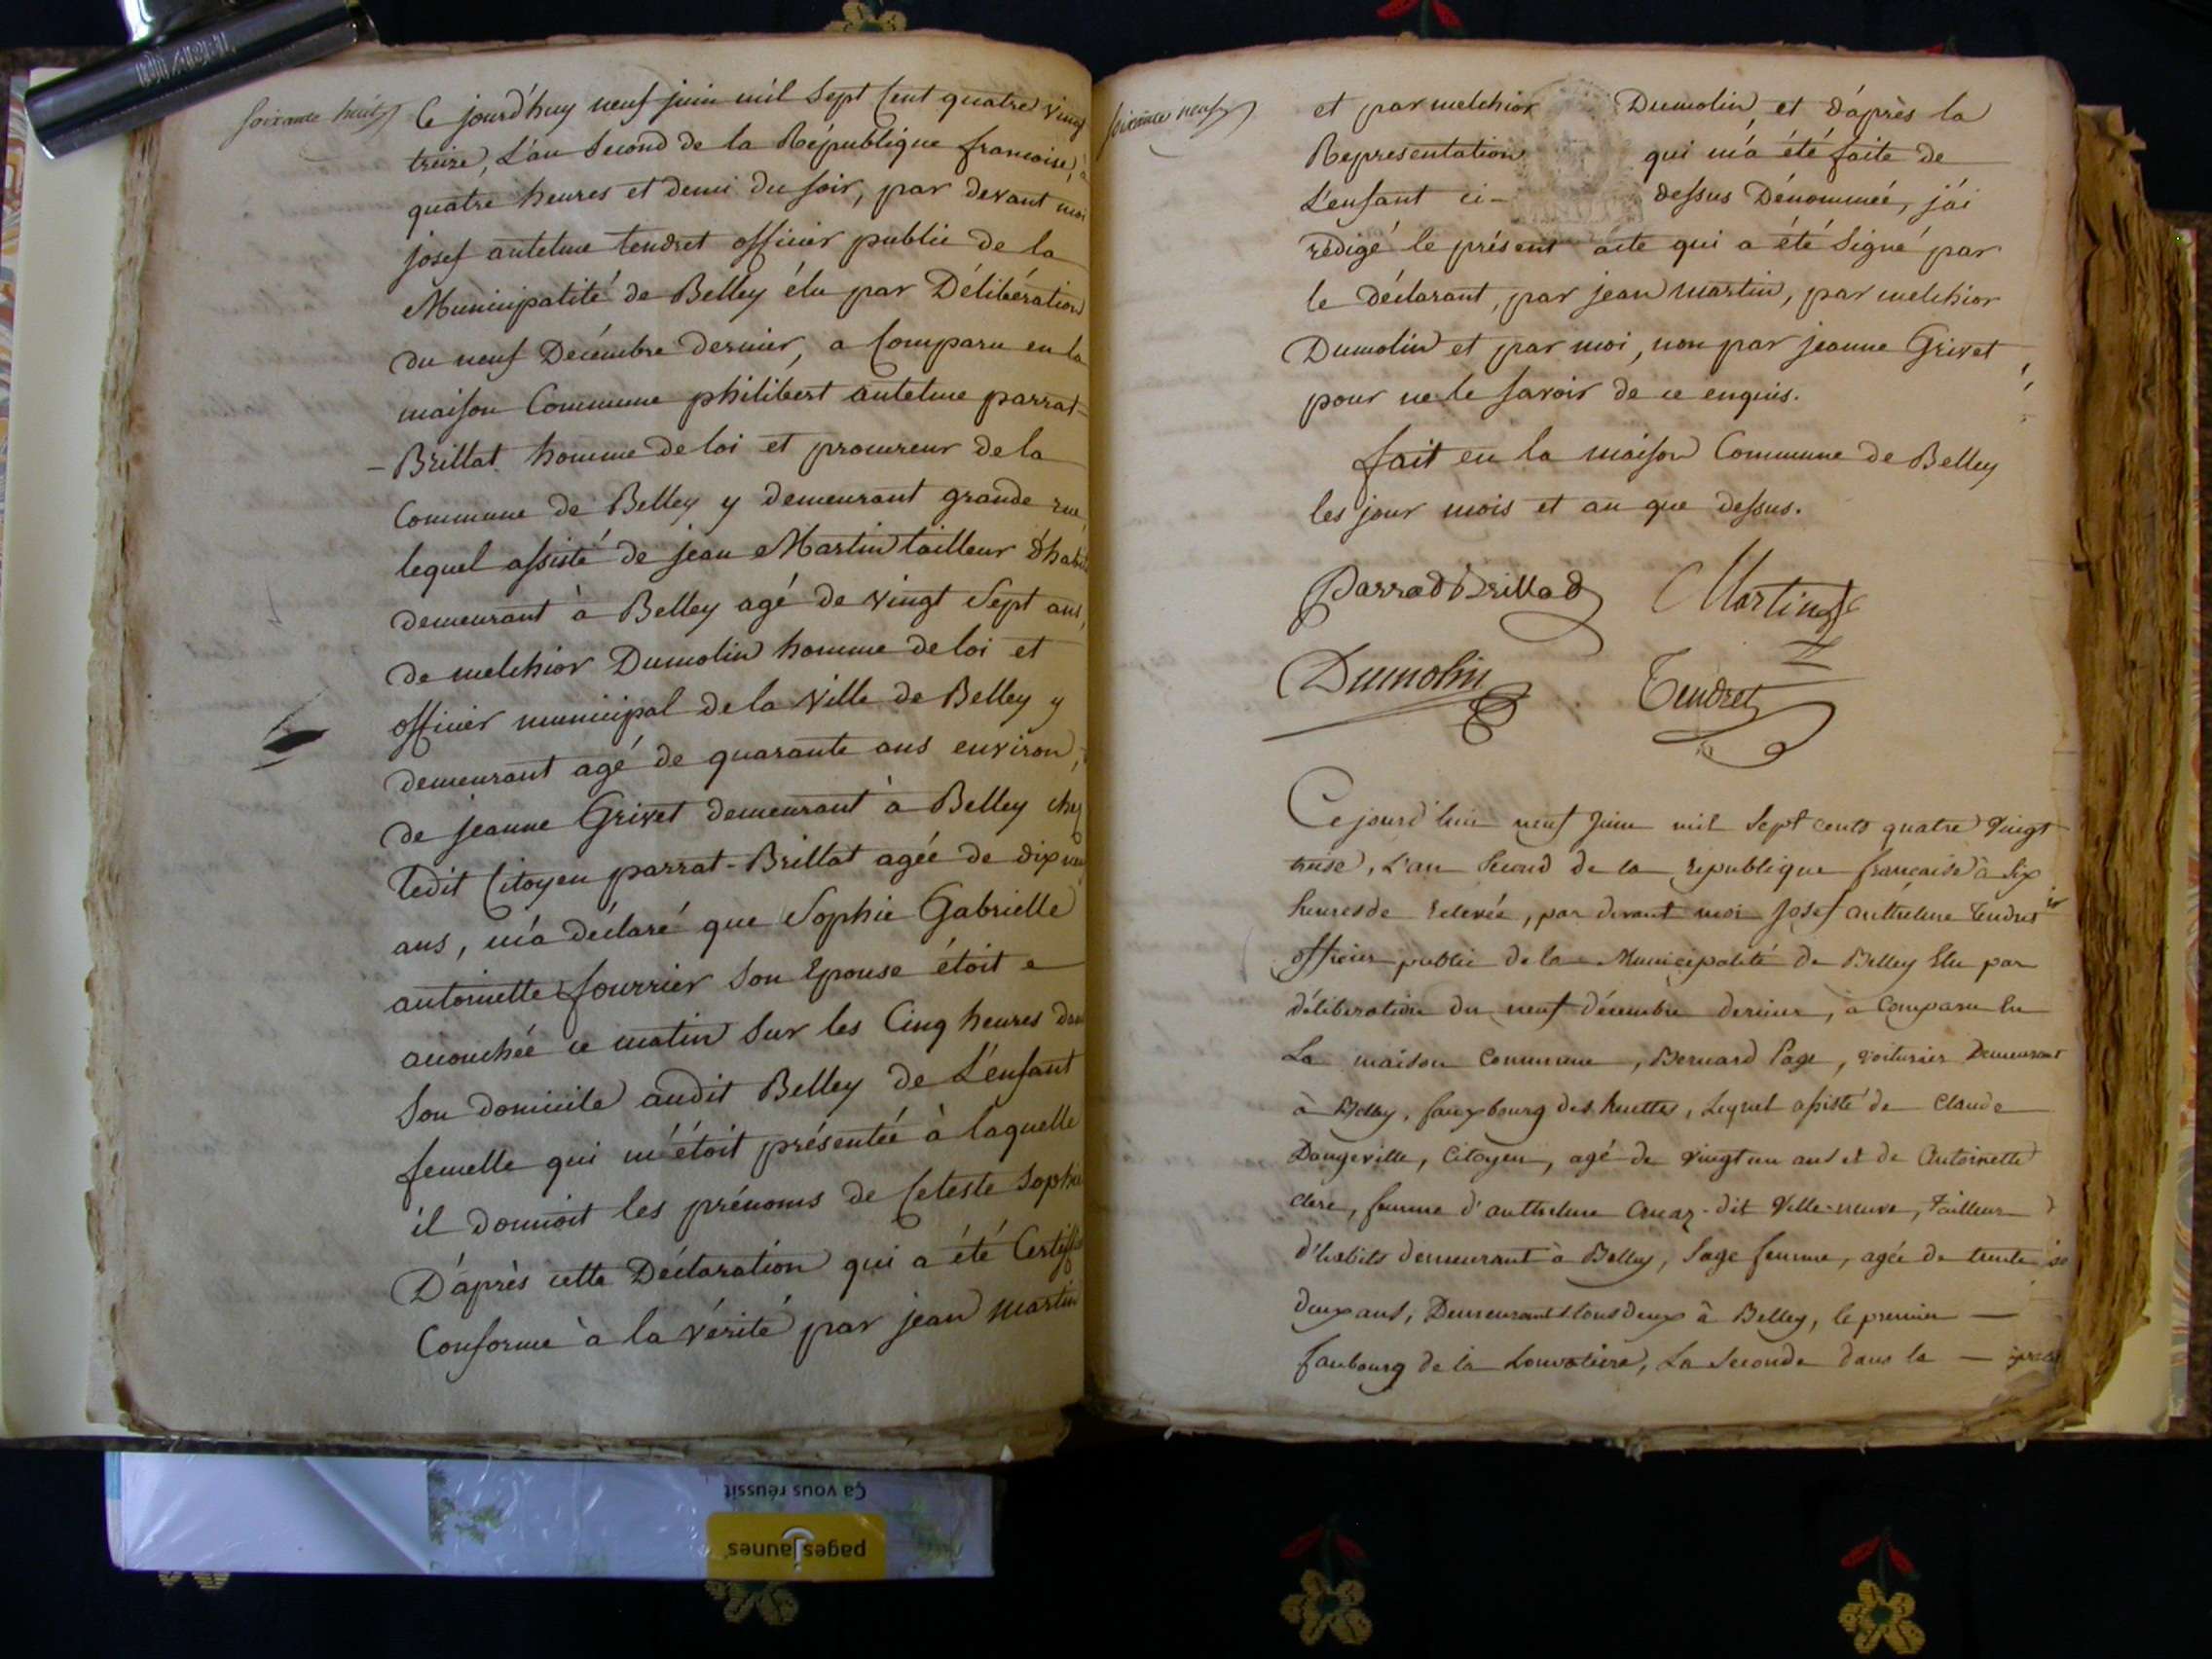 soixante huit
Ce jourd'huy neuf juin mil Sept Cent quatre vingt
treize, L'an Second de la République francoise, à
quatre heures et demi du soir, par devant moi
josef antelme tendret officier public de la
Municipalité de Belley élu par Délibération
du neuf Décembre dernier, a Comparu en la
maison Commune philibert antelme parrat-
-Brillat homme de loi et procureur de la
Commune de Belley y demeurant grande rue,
lequel assisté de jean Martin tailleur d'habits
demeurant à Belley agé de vingt Sept ans,
de melchior Dumolin homme de loi et
officier municipal de la ville de Belley y
demeurant agé de quarante ans environ,
de jeanne Grivet demeurant à Belley chez
ledit Citoyen parrat-Brillat agée de
ans, m'a déclaré que Sophie Gabrielle
antoinette fourrier Son Epouse étoit
acouchée ce matin Sur les Cinq heures dans
Son domicile audit Belley de L'enfant
femelle qui m'étoit présentée à laquelle
il donnoit les prénoms de Celeste Sophie
D'après cette Déclaration qui a été
Conforme à la vérité par jean martin
soixante neuf
et par melchior Dumolin, et d'après la
Représentation qui m'a été faite de
L'enfant ci- dessus Dénommée, j'ai
rédigé le présent acte qui a été Signé par
le déclarant, par jean martin, par melchior
Dumolin et par moi, non par jeanne Grivet
pour ne le savoir de ce enquis.
fait en la maison Commune de Belley
les jour mois et an que dessus.
Parrad Brillad Martin
Dumolin Tendret
Ce jourd'hui neuf Juin mil Sept cents quatre vingt
treise, L'an Second de la republique française à Six
heures de relevée, par devant moi Josef anthelme Tendret
officier public de la Municipalité de Belley Elu par
déliberation du neuf décembre dernier, a Comparu En
La maison Commune, Bernard Page, voiturier Demeurant
à Belley, fauxbourg des huttes, Lequel assisté de Claude
Dangeville, Citoyen, agé de vingt un ans et de Antoinette
clerc, femme d'anthelme Cuaz-dit Ville-neuve, Tailleur
d'habits demeurant à Belley, Sage femme, agée de trente
deux ans, Demeurants tous deux à Belley, le premier
faubourg de la Louvatiere, La Seconde dans la
Ça vous réussit
pagesJaunes